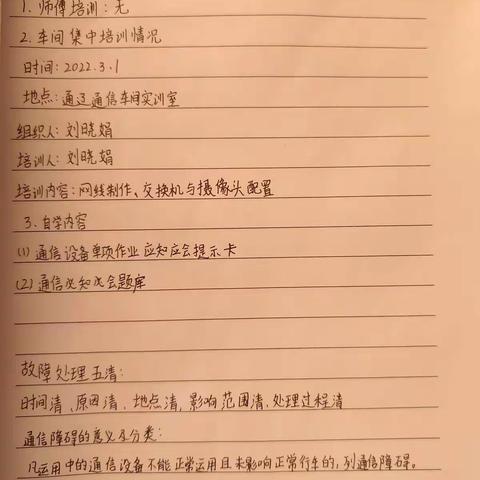 1. 师傅培训：无
2. 车间集中培训情况
时间：2022.3.1
地点：通辽通信车间实训室
组织人：刘晓娟
培训人：刘晓娟
培训内容：网线制作、交换机与摄像头配置
3. 自学内容
(1) 通信设备单项作业应知应会提示卡
(2) 通信必知必会题库
故障处理五清：
时间清、原因清、地点清，影响范围清、处理过程清
通信障碍的意义及分类：
凡运用中的通信设备不能正常运用且未影响正常行车的，列通信障碍。